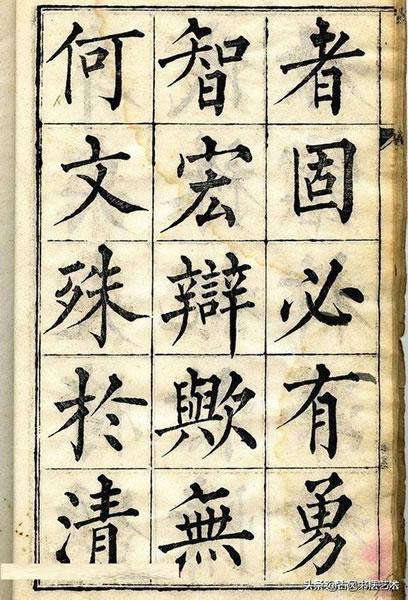 者固必有勇
智宏辯歟無
何文殊於清
头条
书法艺术